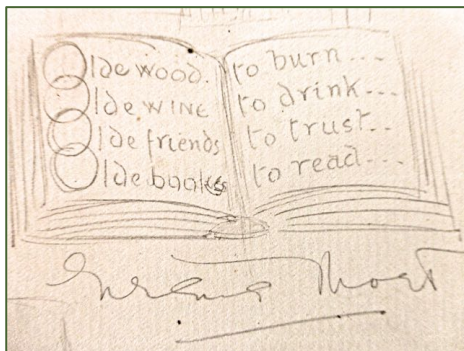 Olde wood. to burn...
Olde WINE to drink...
Olde friends to trust..
Olde books to read...